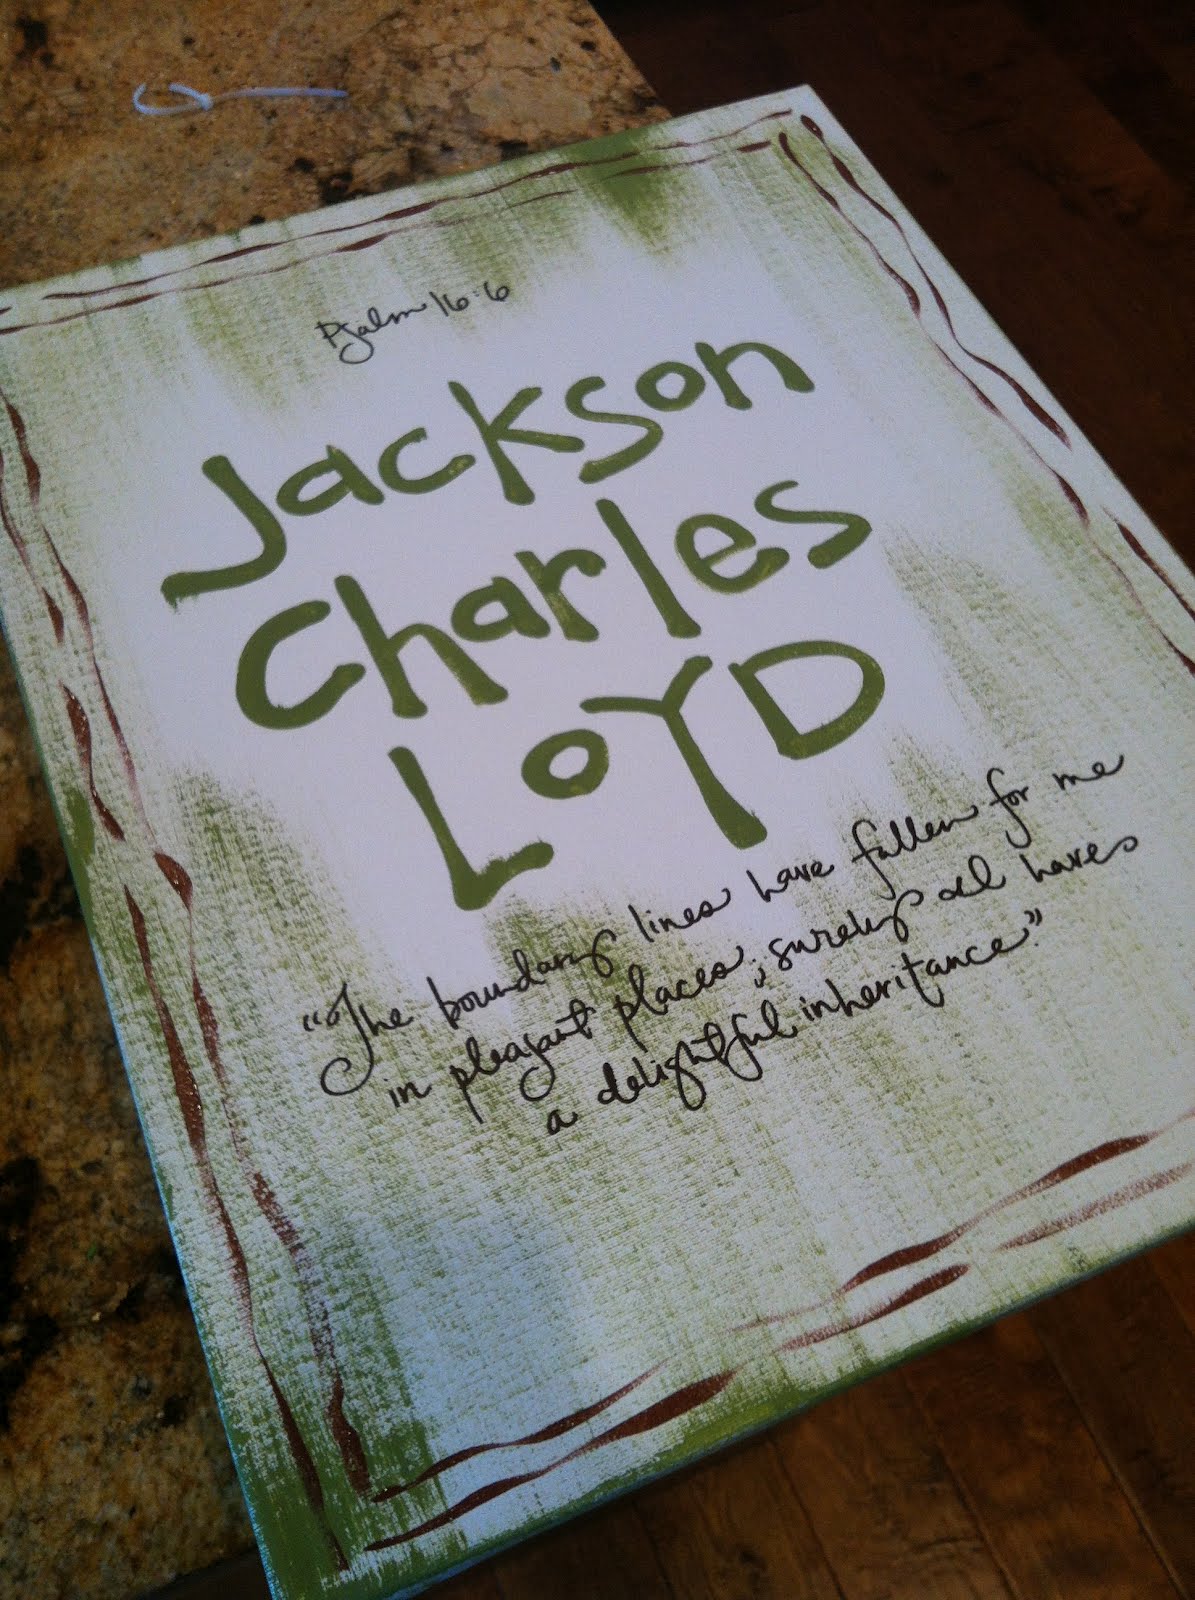 Psalm 16:6
Jackson
Charles
LOYD
"The boundary lines have fallen for me
in pleasant places; surely I have
a delightful inheritance."